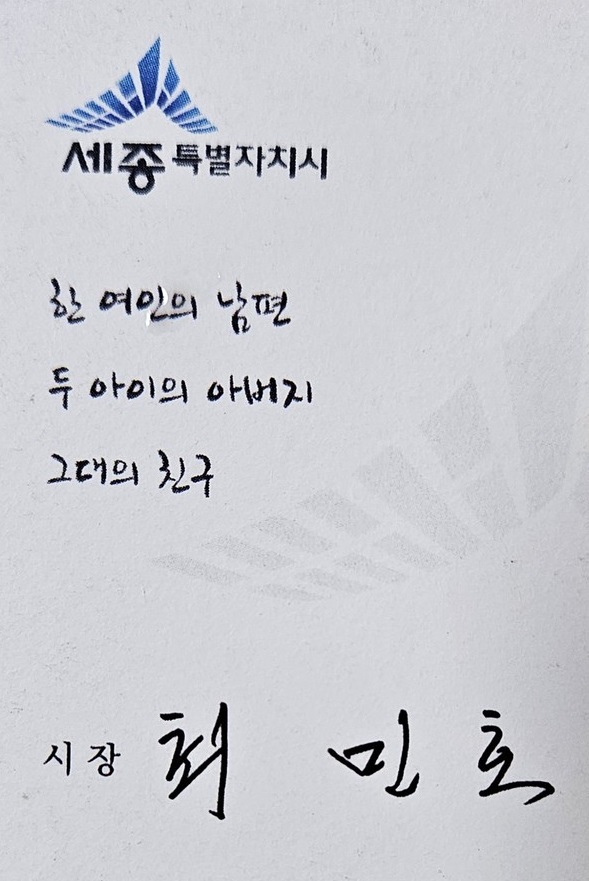 세종특별자치시
한 여인의 남편
두 아이의 아버지
그대의 친구
시장 최 민호